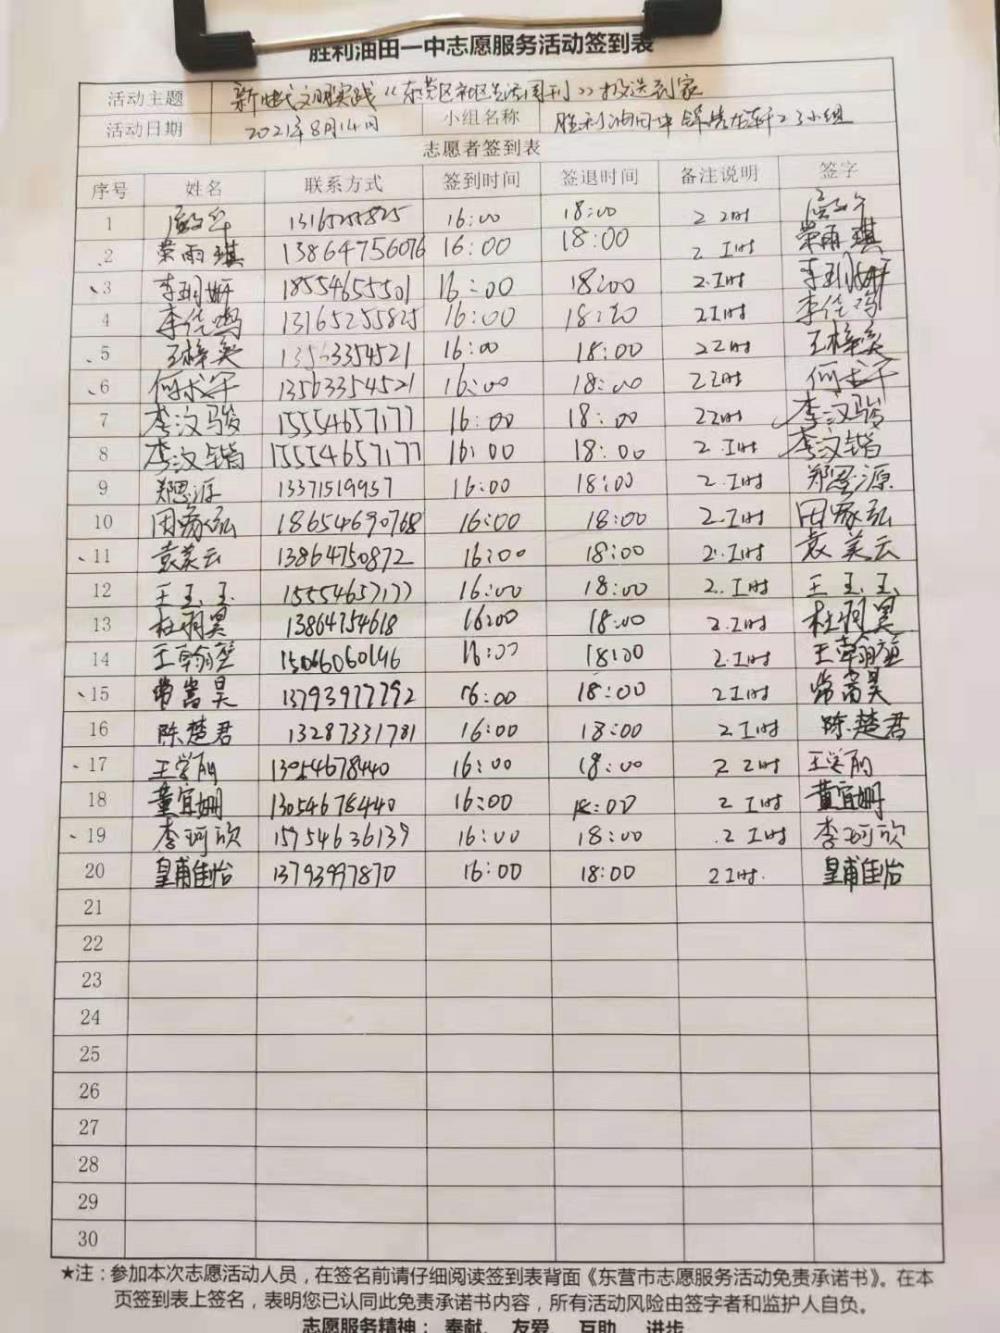 胜利油田一中志愿服务活动签到表
活动主题 新时代文明实践《东营区社区生活周刊》投送到家
活动日期 2021年8月14日 小组名称 胜利油田一中 23小组
志愿者签到表
序号 姓名 联系方式 签到时间 签退时间 备注说明 签字
1 13165255825 16:00 18:00 2小时
2 荣雨琪 13864756076 16:00 18:00 2工时 荣雨琪
3 李玥妍 18554655501 16:00 18:00 2.工时 李玥妍
4 李佳鸣 13165255825 16:00 18:00 2工时 李佳鸣
5 王梓奕 13563354521 16:00 18:00 2工时 王梓奕
6 何 13563354521 16:00 18:00 2工时 何
7 李汶骏 15554657177 16:00 18:00 2工时 李汶骏
8 李汶锴 15554657177 16:00 18:00 2.工时 李汶锴
9 郑思源 13371519957 16:00 18:00 2.工时 郑思源
10 田家弘 18654690768 16:00 18:00 2.工时 田家弘
11 袁美云 13864750872 16:00 18:00 2.工时 袁美云
12 王玉玉 15554657177 16:00 18:00 2.工时 王玉玉
13 杜羽昊 13864754618 16:00 18:00 2.工时 杜羽昊
14 王翰 15066060146 16:00 18:00 2.工时 王翰
15 常富昊 13793977792 16:00 18:00 2工时 常富昊
16 陈楚君 13287331781 16:00 18:00 2工时 陈楚君
17 王学丽 13054678440 16:00 18:00 2工时 王学丽
18 董宜姗 13054678440 16:00 18:00 2工时 董宜姗
19 李珂欣 15954636139 16:00 18:00 2工时 李珂欣
20 皇甫佳怡 13793997870 16:00 18:00 2工时. 皇甫佳怡
21
22
23
24
25
26
27
28
29
30
★注：参加本次志愿活动人员，在签名前请仔细阅读签到表背面《东营市志愿服务活动免责承诺书》。在本
页签到表上签名，表明您已认同此免责承诺书内容，所有活动风险由签字者和监护人自负。
志愿服务精神：奉献、友爱、互助、进步